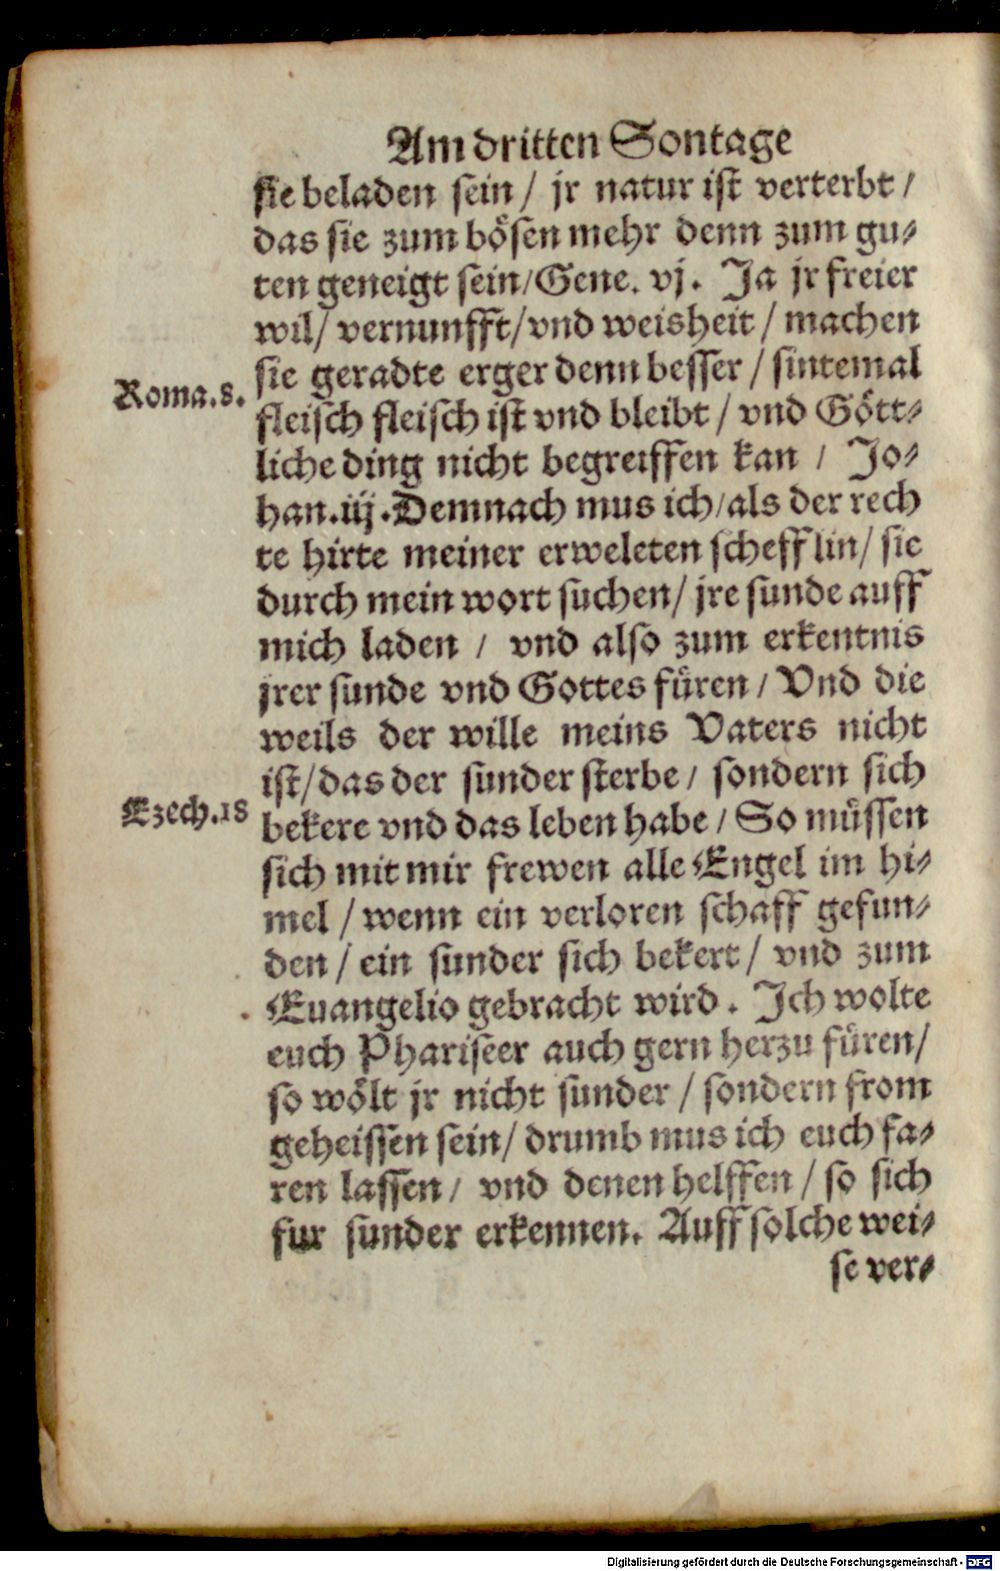 Am dritten Sontage
sie beladen sein / jr natur ist verterbt /
das sie zum bösen mehr denn zum gu⸗
ten geneigt sein / Gene. vj. Ja jr freier
wil / vernunfft / vnd weisheit / machen
sie geradte erger denn besser / sintemal
Roma.8.
fleisch fleisch ist vnd bleibt / vnd Gött⸗
liche ding nicht begreiffen kan / Jo⸗
han.iij. Demnach mus ich / als der rech
te hirte meiner erweleten schefflin / sie
durch mein wort suchen / jre sunde auff
mich laden / vnd also zum erkentnis
jrer sunde vnd Gottes füren / Vnd die
weils der wille meins Vaters nicht
ist / das der sunder sterbe / sondern sich
Ezech.18
bekere vnd das leben habe / So müssen
sich mit mir frewen alle Engel im hi⸗
mel / wenn ein verloren schaff gefun⸗
den / ein sunder sich bekert / vnd zum
Euangelio gebracht wird. Ich wolte
euch Phariseer auch gern herzu füren /
so wölt jr nicht sunder / sondern from
geheissen sein / drumb mus ich euch fa⸗
ren lassen / vnd denen helffen / so sich
fur sunder erkennen. Auff solche wei⸗
se ver⸗
Digitalisierung gefördert durch die Deutsche Forschungsgemeinschaft - DFG